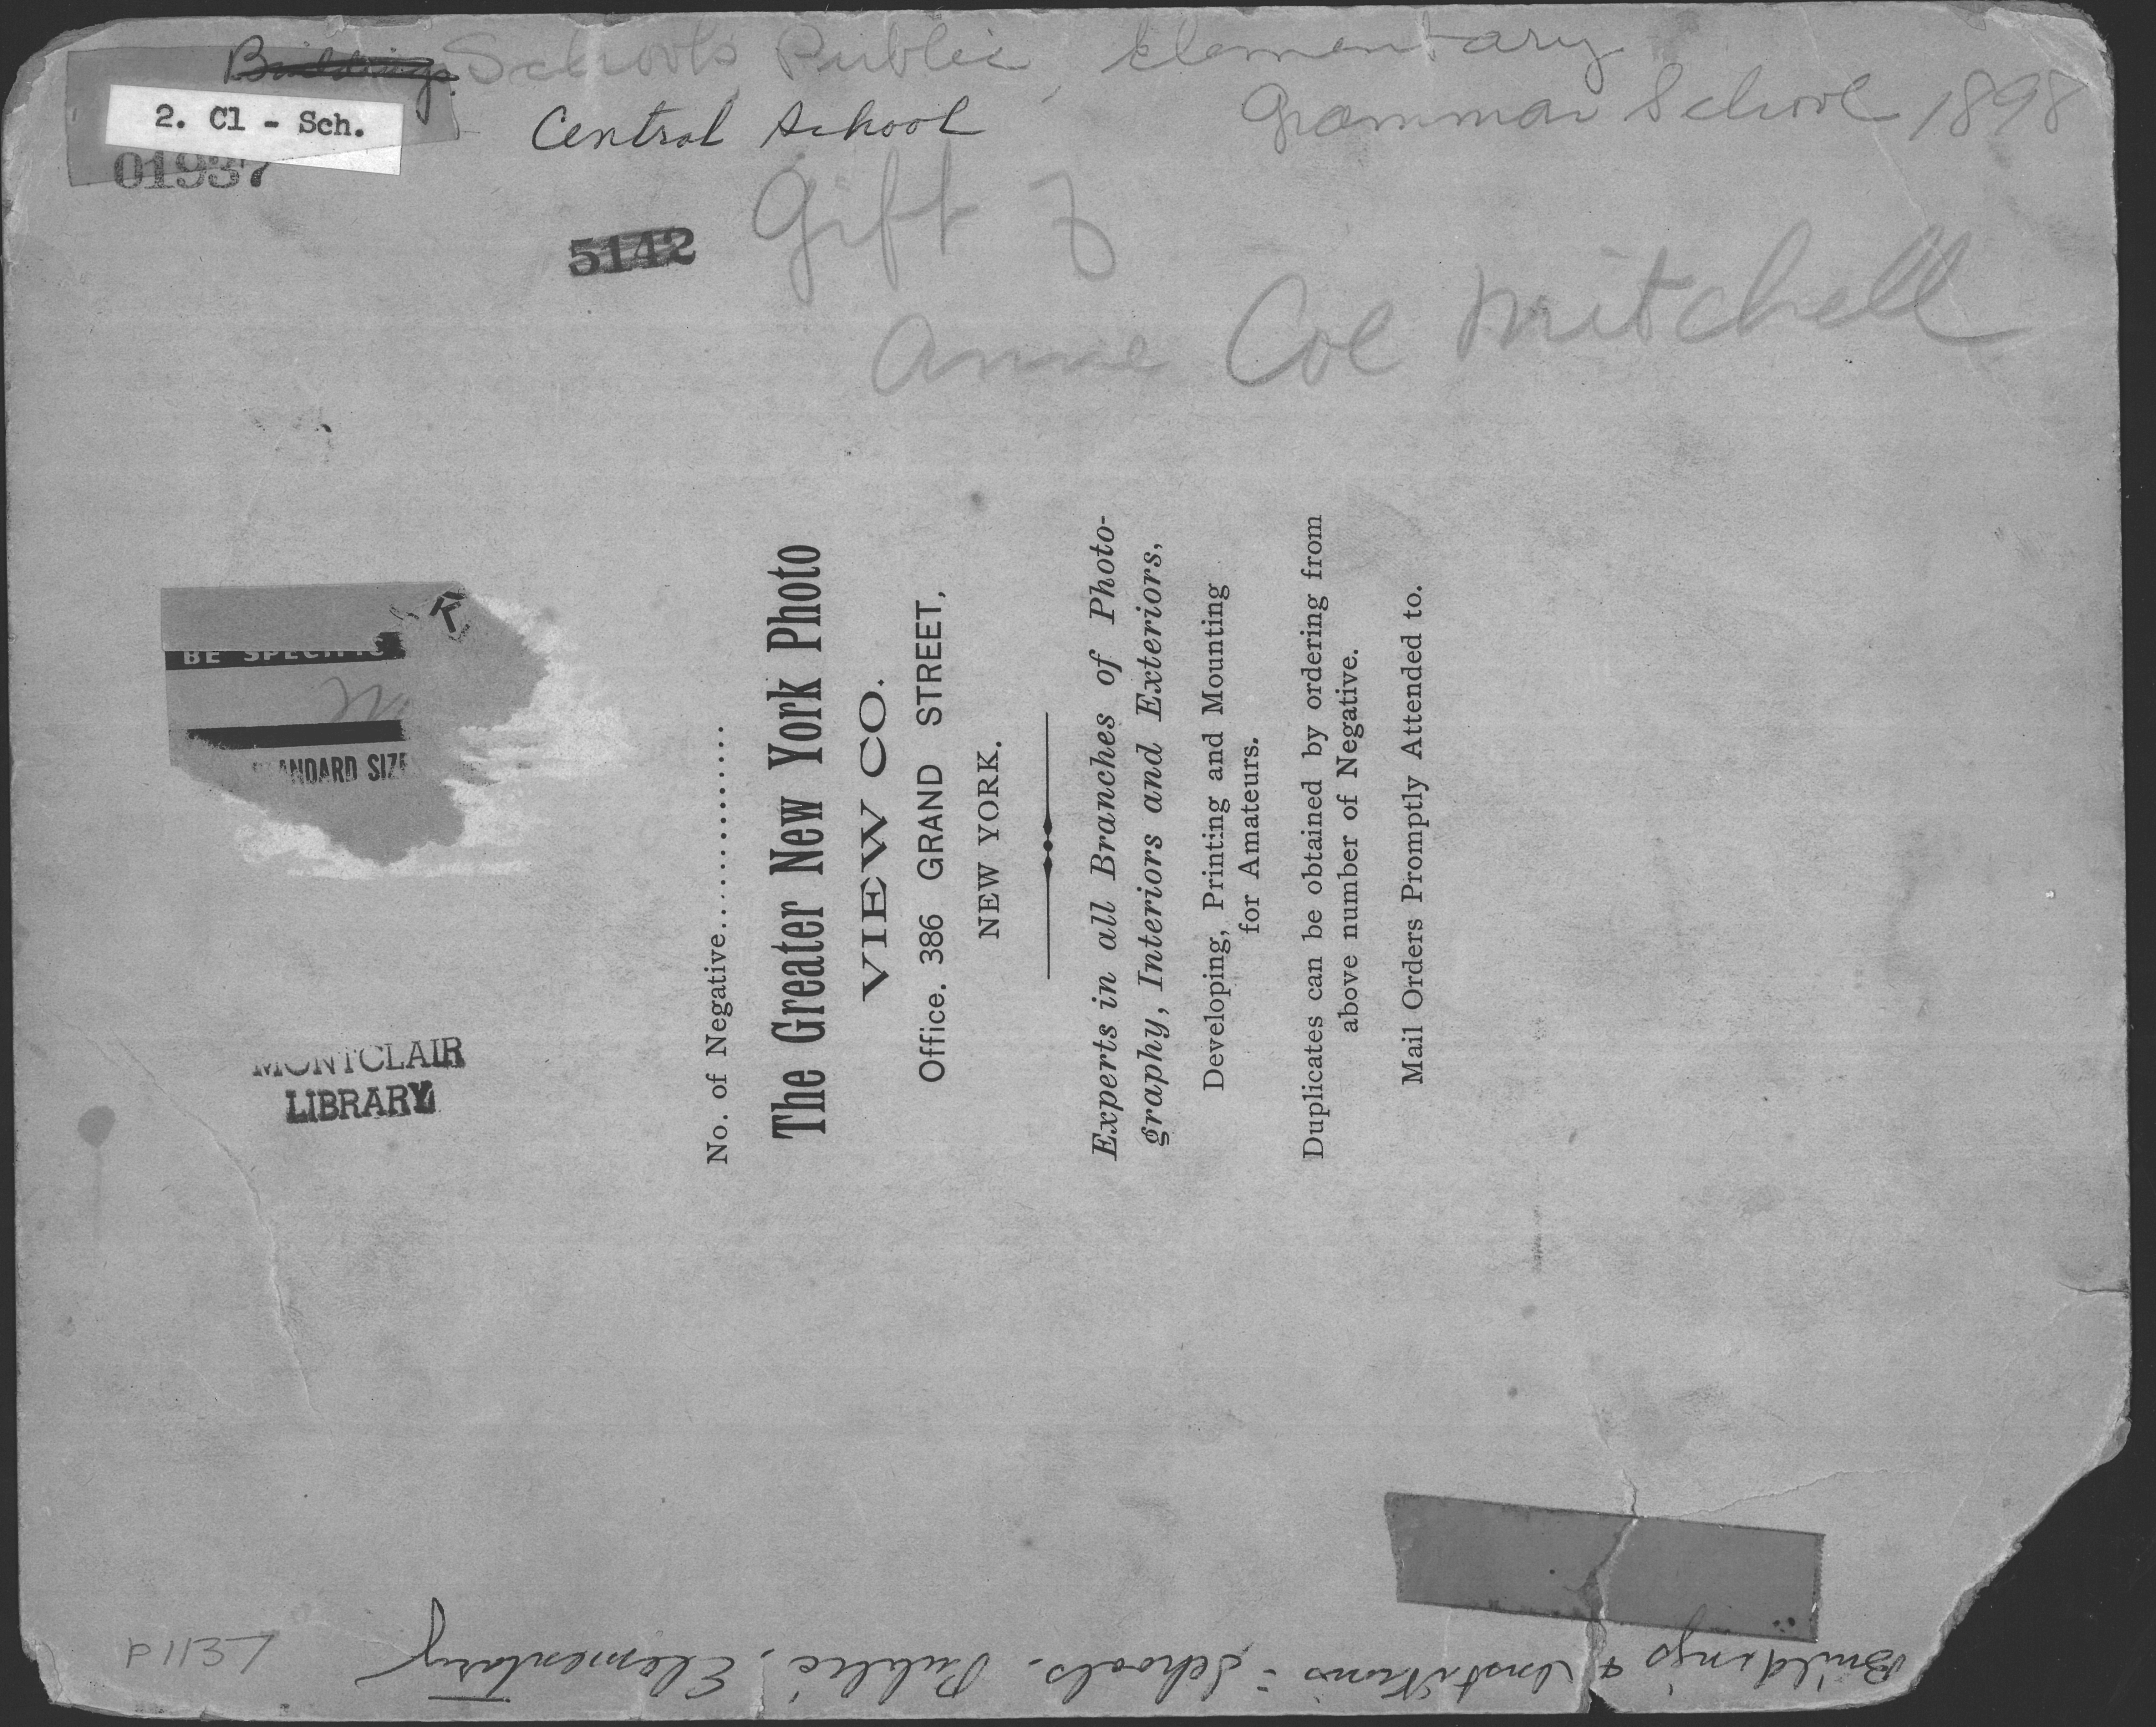 Buildings. Schools Public, Elementary
Central School
Grammar School 1898
2. Cl - Sch.
01937
Gift of
5142
Anne Coe Mitchell
K
BE SPECIFIC
ANDARD SIZE
MONTCLAIR
LIBRARY
No. of Negative....................
The Greater New York Photo
VIEW CO.
Office. 386 GRAND STREET,
NEW YORK.
Experts in all Branches of Photo-
graphy, Interiors and Exteriors,
Developing, Printing and Mounting
for Amateurs.
Duplicates can be obtained by ordering from
above number of Negative.
Mail Orders Promptly Attended to.
P1137
Buildings & Institutions: Schools. Public, Elementary